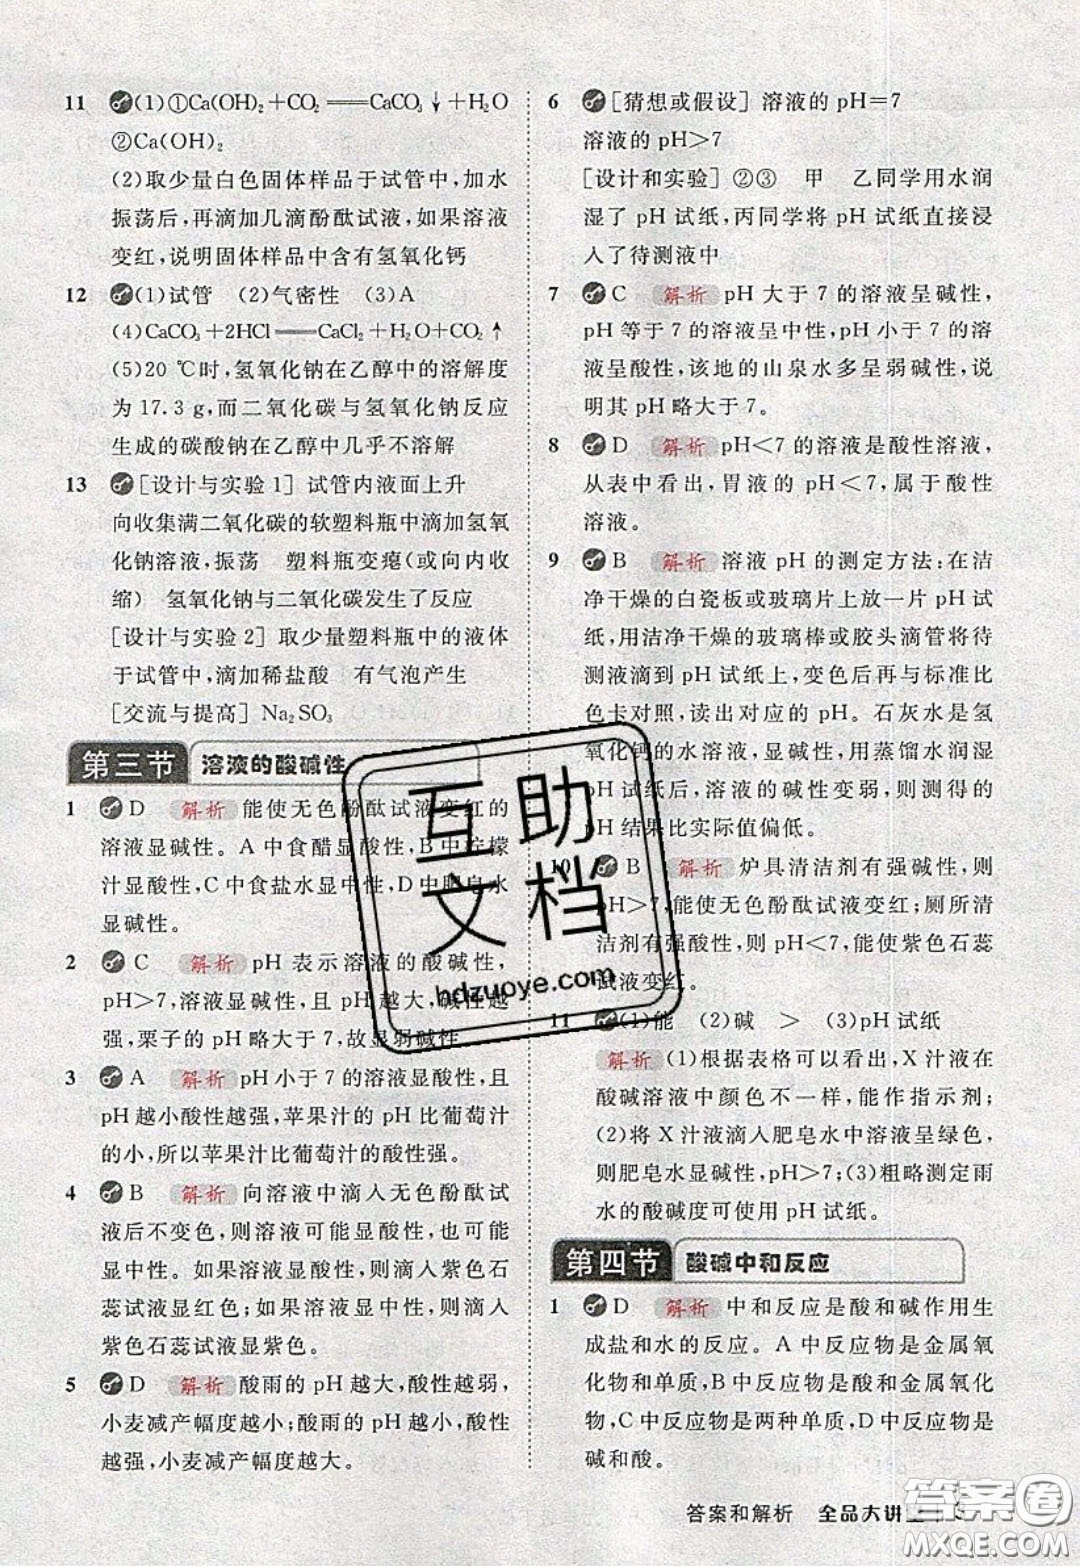 11 (1)①Ca(OH)₂+CO₂══CaCO₃↓+H₂O
②Ca(OH)₂
(2)取少量白色固体样品于试管中,加水
振荡后,再滴加几滴酚酞试液,如果溶液
变红,说明固体样品中含有氢氧化钙
12 (1)试管 (2)气密性 (3)A
(4)CaCO₃+2HCl══CaCl₂+H₂O+CO₂↑
(5)20 ℃时,氢氧化钠在乙醇中的溶解度
为 17.3 g,而二氧化碳与氢氧化钠反应
生成的碳酸钠在乙醇中几乎不溶解
13 [设计与实验 1] 试管内液面上升
向收集满二氧化碳的软塑料瓶中滴加氢氧
化钠溶液,振荡 塑料瓶变瘪(或向内收
缩) 氢氧化钠与二氧化碳发生了反应
[设计与实验 2] 取少量塑料瓶中的液体
于试管中,滴加稀盐酸 有气泡产生
[交流与提高] Na₂SO₃
第三节 溶液的酸碱性
1 D 解析 能使无色酚酞试液变红的
溶液显碱性。A 中食醋显酸性,B 中柠檬
汁显酸性,C 中食盐水显中性,D 中肥皂水
显碱性。
2 C 解析 pH 表示溶液的酸碱性,
pH>7,溶液显碱性,且 pH 越大,碱性越
强,栗子的 pH 略大于 7,故显弱碱性。
3 A 解析 pH 小于 7 的溶液显酸性,且
pH 越小酸性越强,苹果汁的 pH 比葡萄汁
的小,所以苹果汁比葡萄汁的酸性强。
4 B 解析 向溶液中滴入无色酚酞试
液后不变色,则溶液可能显酸性,也可能
显中性。如果溶液显酸性,则滴入紫色石
蕊试液显红色;如果溶液显中性,则滴入
紫色石蕊试液显紫色。
5 D 解析 酸雨的 pH 越大,酸性越弱,
小麦减产幅度越小;酸雨的 pH 越小,酸性
越强,小麦减产幅度越大。
6 [猜想或假设] 溶液的 pH=7
溶液的 pH>7
[设计和实验] ②③ 甲 乙同学用水润
湿了 pH 试纸,丙同学将 pH 试纸直接浸
入了待测液中
7 C 解析 pH 大于 7 的溶液呈碱性,
pH 等于 7 的溶液呈中性,pH 小于 7 的溶
液呈酸性,该地的山泉水多呈弱碱性,说
明其 pH 略大于 7。
8 D 解析 pH<7 的溶液是酸性溶液,
从表中看出,胃液的 pH<7,属于酸性
溶液。
9 B 解析 溶液 pH 的测定方法:在洁
净干燥的白瓷板或玻璃片上放一片 pH 试
纸,用洁净干燥的玻璃棒或胶头滴管将待
测液滴到 pH 试纸上,变色后再与标准比
色卡对照,读出对应的 pH。石灰水是氢
氧化钙的水溶液,显碱性,用蒸馏水润湿
pH 试纸后,溶液的碱性变弱,则测得的
pH 结果比实际值偏低。
10 B 解析 炉具清洁剂有强碱性,则
pH>7,能使无色酚酞试液变红;厕所清
洁剂有强酸性,则 pH<7,能使紫色石蕊
试液变红。
11 (1)能 (2)碱 > (3)pH 试纸
解析 (1)根据表格可以看出,X 汁液在
酸碱溶液中颜色不一样,能作指示剂;
(2)将 X 汁液滴入肥皂水中溶液呈绿色,
则肥皂水显碱性,pH>7;(3)粗略测定雨
水的酸碱度可使用 pH 试纸。
第四节 酸碱中和反应
1 D 解析 中和反应是酸和碱作用生
成盐和水的反应。A 中反应物是金属氧
化物和单质,B 中反应物是酸和金属氧化
物,C 中反应物是两种单质,D 中反应物是
碱和酸。
答案和解析 全品大讲堂
互助
文档
hdzuoye.com
答案圈
MXQE.COM